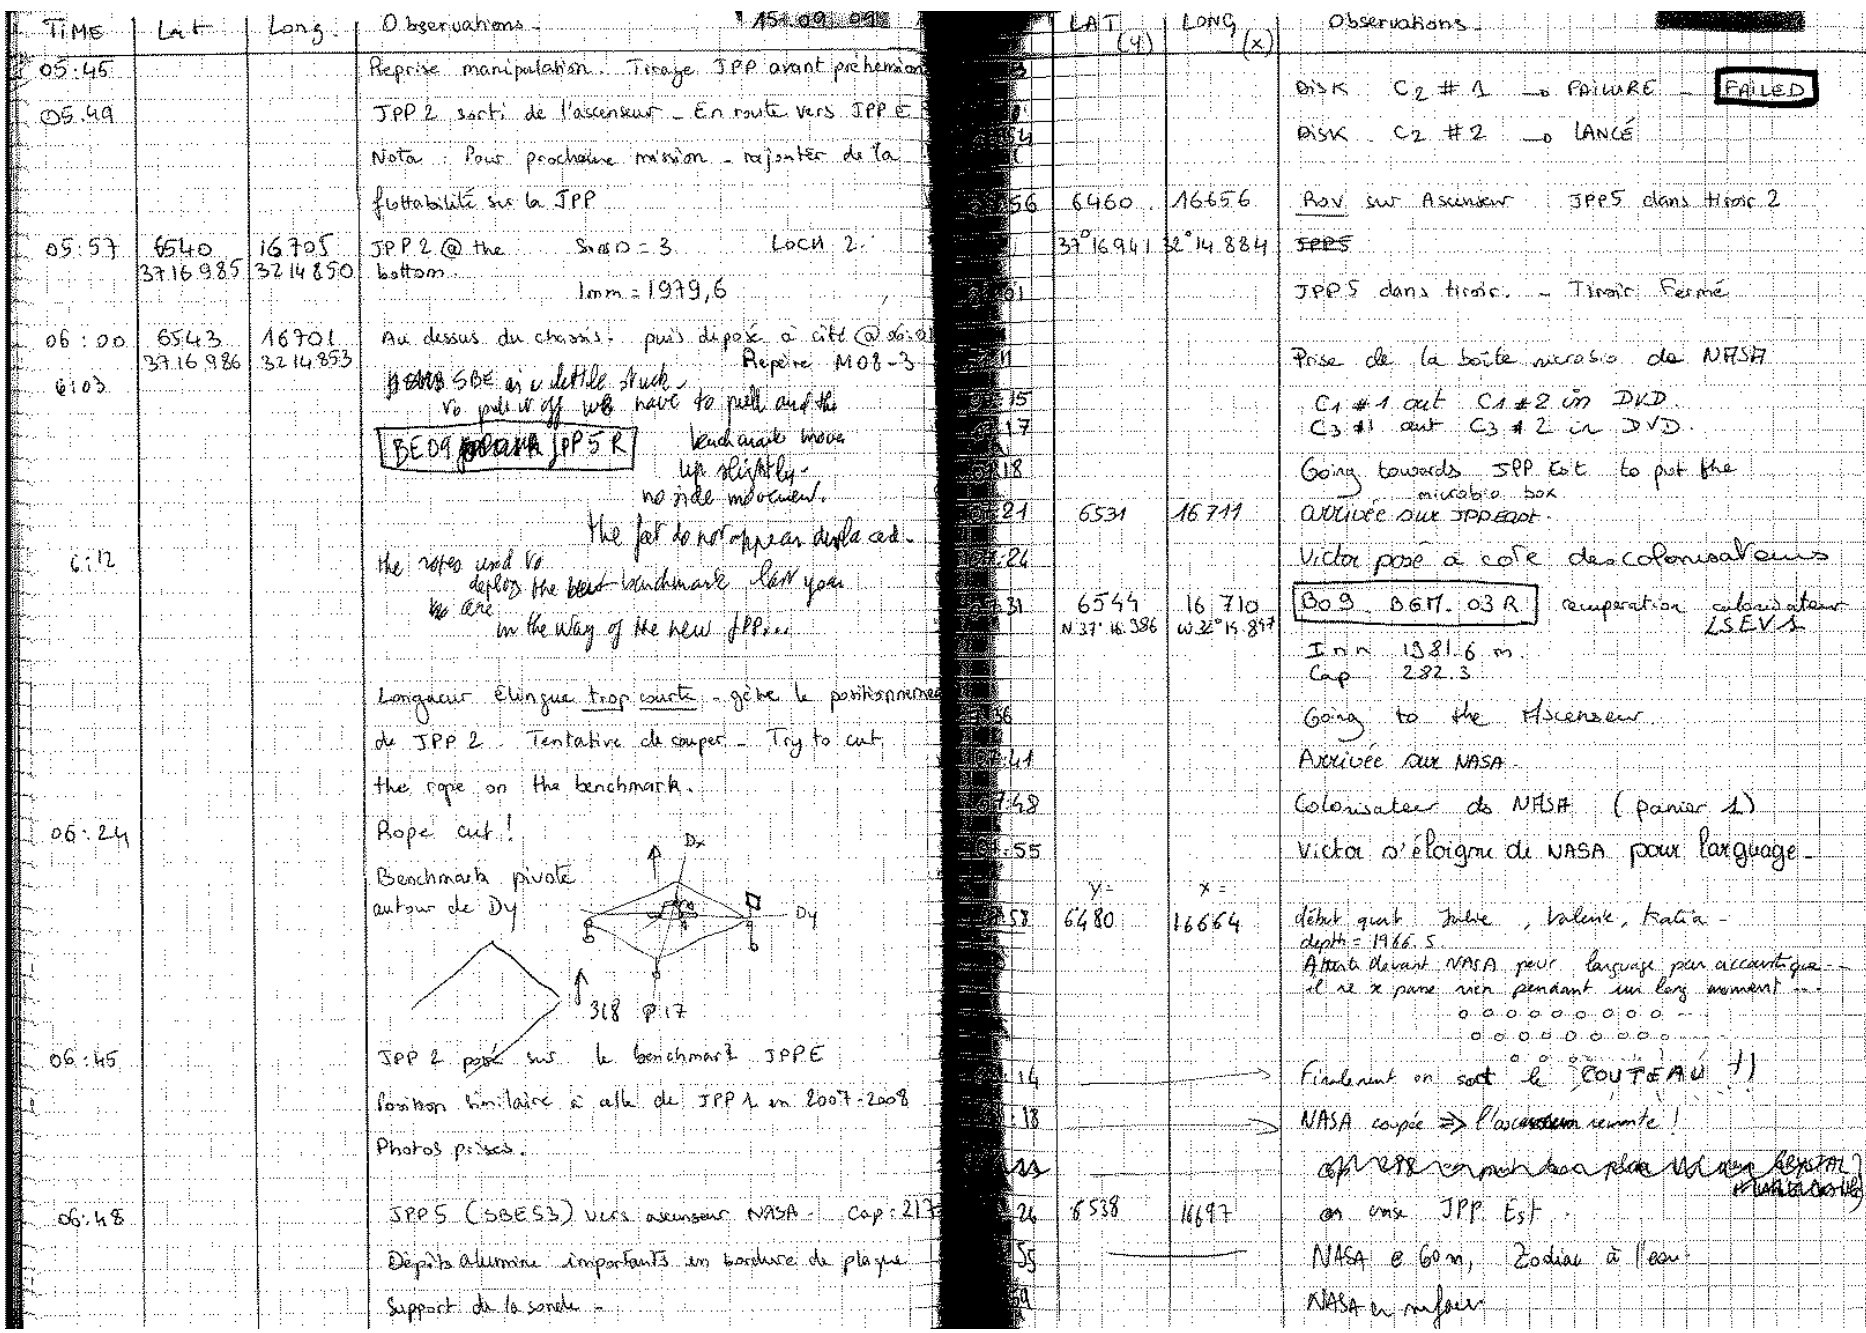 TIME Lat Long. Observations. 15.09.09
05:45 Reprise manipulation. Tirage JPP avant préhension
05.49 JPP 2 sorti de l'ascenseur - En route vers JPP E
Nota : Pour prochaine mission - rajouter de la
flottabilité sur la JPP
05:57 6540 16705 JPP 2 @ the = 3 LOCH 2.
3716.985 3214850 bottom.
Imm = 1979,6
06:00 6543 16701 Au dessus du chassis. puis déposé à côté @ 06:01
3716.986 3214853 Repère M08-3
6:03 SBE is a little stuck -
to pull it off we have to pull and the
BE09 JPP5R benchmark move
up slightly -
no side movement.
the feet do not appear displaced -
6:12 the ropes used to
deploy the benchmark last year
are
in the way of the new JPP...
Longueur Elingue trop courte - gêne le positionnement
de JPP 2. Tentative de couper - Try to cut
the rope on the benchmark.
06:24 Rope cut!
Dx
Benchmark pivote
autour de Dy
Dy
318 p.17
06:45 JPP 2 posé sur le benchmark JPPE
Position similaire à celle de JPP 1 en 2007-2008
Photos prises.
06:48 JPP5 (SBE53) vers ascenseur NASA - Cap: 217
Dépôts alumine importants en bordure de plaque
Support de la sonde -
LAT (y) LONG (x) Observations -
DISK C2 #1 → FAILURE - FAILED
DISK C2 #2 → LANCÉ
56 6460 16656 Rov sur Ascenseur JPP5 dans tiroir 2
37°16941 32°14.884 JPP5
01 JPP5 dans tiroir. - Tiroir Fermé
11 Prise de la boîte microbio de NASA
15 C1 #1 out C1 #2 in DVD.
17 C3 #1 out C3 #2 in DVD.
18 Going towards JPP Est to put the
microbio box
21 6531 16711 arrivée sur JPPEast.
:24 Victor posé à coté des colonisateurs
31 6544 16 710 B09. BGM. 03 R récupération colonisateur
N 37° 16.986 W 32° 14.847 LSEV1
Imm 1981.6 m.
Cap 282.3
36 Going to the Ascenseur.
:41 Arrivée sur NASA.
7:48 Colonisateur ds NASA (panier 1)
:55 Victor s'éloigne de NASA pour larguage -
y= x=
58 6480 16664 début quart Julie, Valérie, Katia -
depth = 1966.5
Attente devant NASA pour larguage par accoustique...
il ne x passe rien pendant un long moment ...
o o o o o o o o o
o o o o o o o o o
o o o o
:14 Finalement on sort le COUTEAU !)
:18 NASA coupée ⇒ l'ascenseur remonte !
26 6538 16697 on vise JPP Est.
55 NASA @ 60 m, Zodiac à l'eau
59 NASA en surface